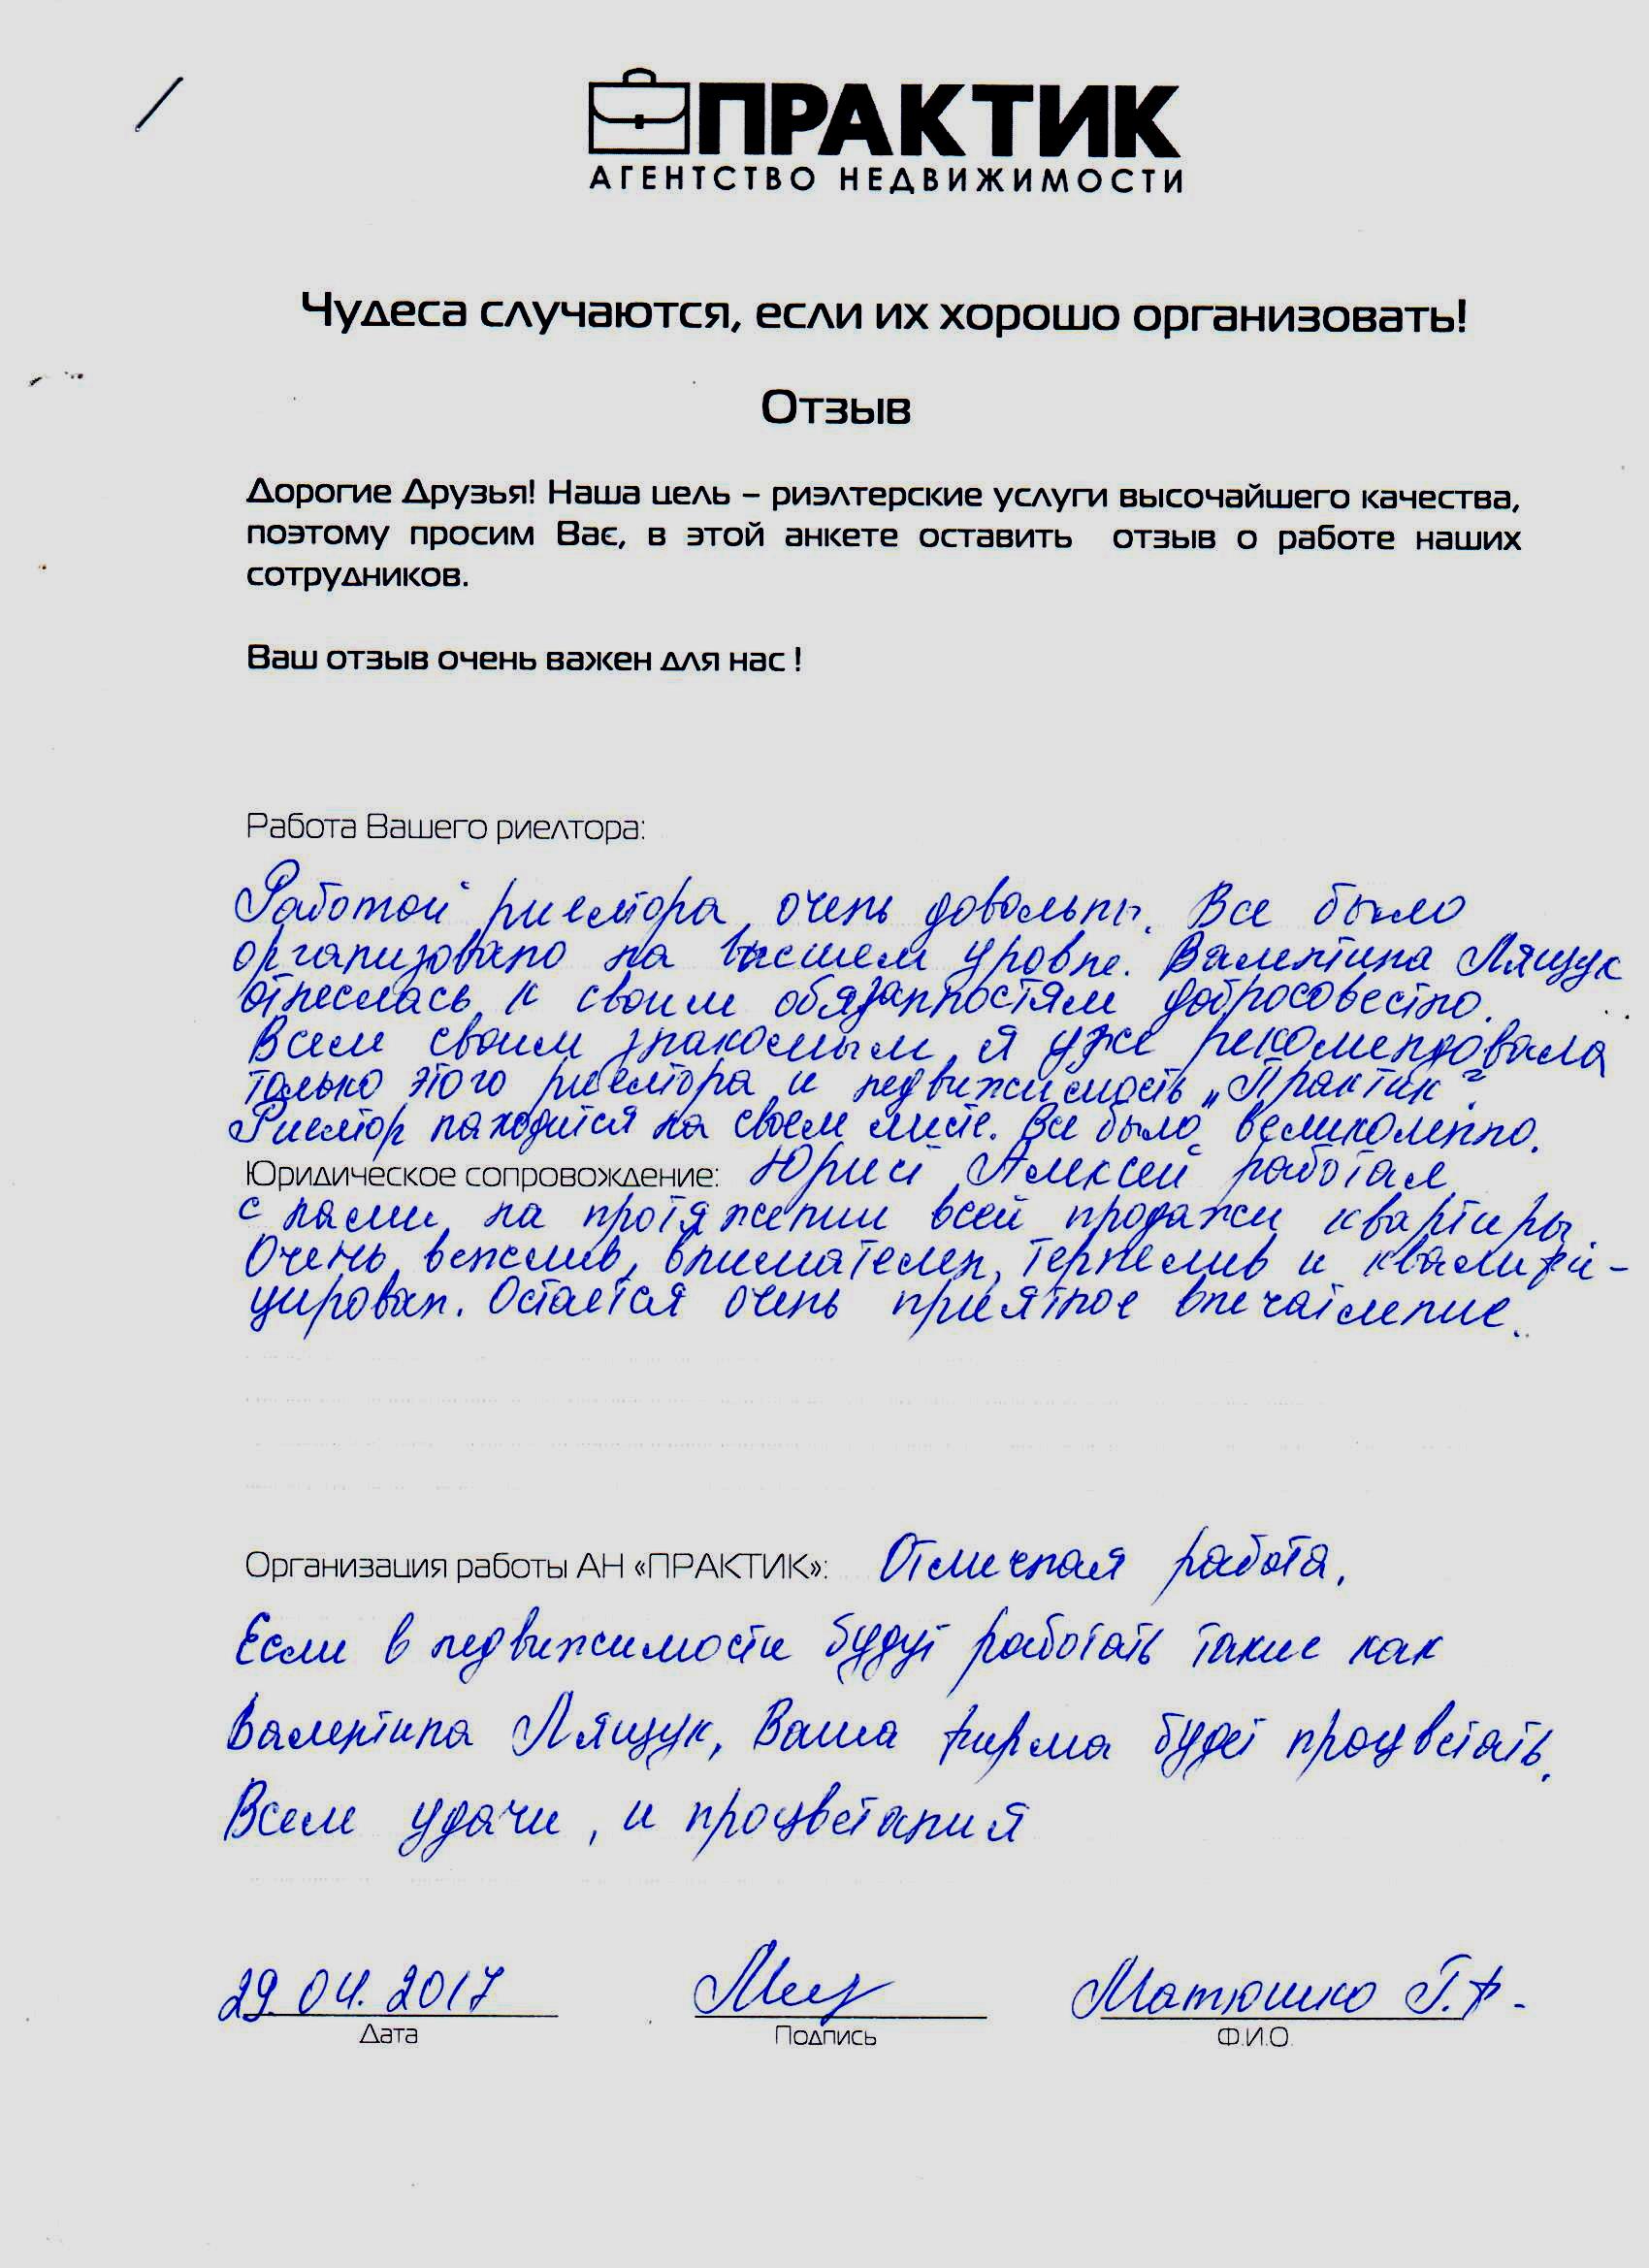 ПРАКТИК
АГЕНТСТВО НЕДВИЖИМОСТИ
Чудеса случаются, если их хорошо организовать!
Отзыв
Дорогие Друзья! Наша цель – риэлтерские услуги высочайшего качества,
поэтому просим Вас, в этой анкете оставить отзыв о работе наших
сотрудников.
Ваш отзыв очень важен для нас !
Работа Вашего риелтора:
Работой риелтора очень довольны. Все было
организовано на высшем уровне. Валентина Лящук
отнеслась к своим обязанностям добросовестно.
Всем своим знакомым я уже рекомендовала
только этого риелтора и недвижимость „Практик“.
Риелтор находится на своем месте. Все было великолепно.
Юридическое сопровождение: Юрист Алексей работал
с нами на протяжении всей продажи квартиры.
Очень вежлив, внимателен, терпелив и квалифи-
цирован. Остается очень приятное впечатление.
Организация работы АН «ПРАКТИК»: Отличная работа.
Если в недвижимости будут работать такие как
Валентина Лящук, Ваша фирма будет процветать.
Всем удачи, и процветания
29.04.2017 Матюшко Г.Ф.
Дата Подпись Ф.И.О.